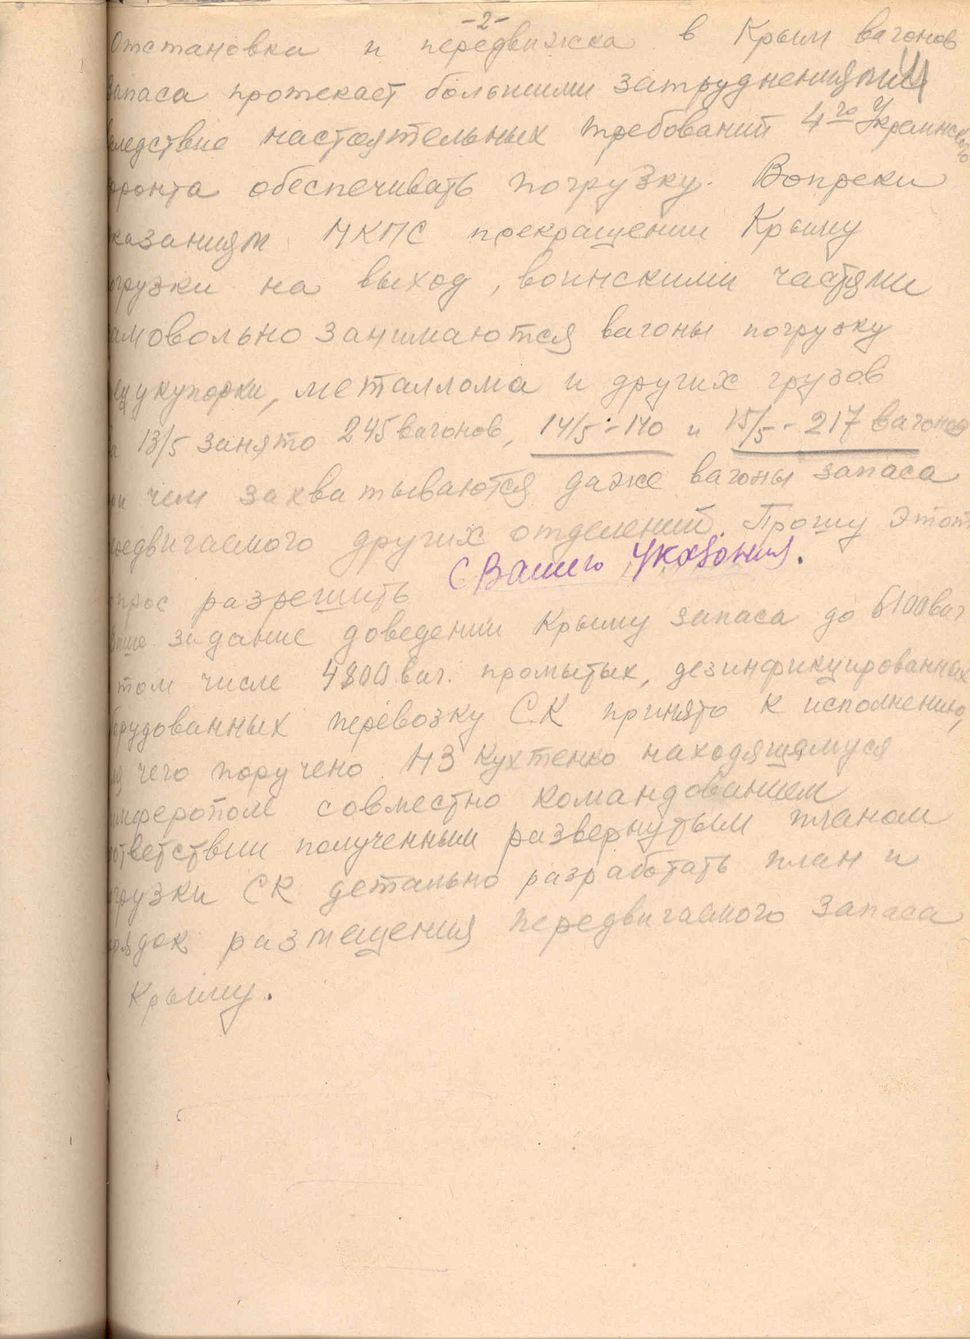 -2-
Отстановка и передвижка в Крым вагонов
запаса протекает большими затруднениями
вследствие настоятельных требований 4го Украинского
фронта обеспечивать погрузку. Вопреки
указаниям НКПС прекращении Крыму
погрузки на выход, воинскими частями
самовольно занимаются вагоны погрузку
спецукупорки, металлома и других грузов
за 13/5 занято 245 вагонов, 14/5 - 140 и 15/5 - 217 вагонов
при чем захватываются даже вагоны запаса
передвигаемого других отделений. Прошу этот
вопрос разрешить
с Вашего указания.
Ваше задание доведении Крыму запаса до 6100 ваг
том числе 4800 ваг. промытых, дезинфицированных
оборудованных перевозку СК принято к исполнению,
для чего поручено НЗ Кухтенко находящямуся
Симферопом совместно командованием
соответствии полученным развернутым планом
погрузки СК детально разработать план и
порядок размещения передвигаемого запаса
Крыму.